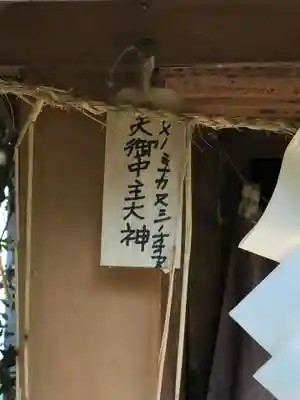 メノミナカヌシノオオ
天御中主大神